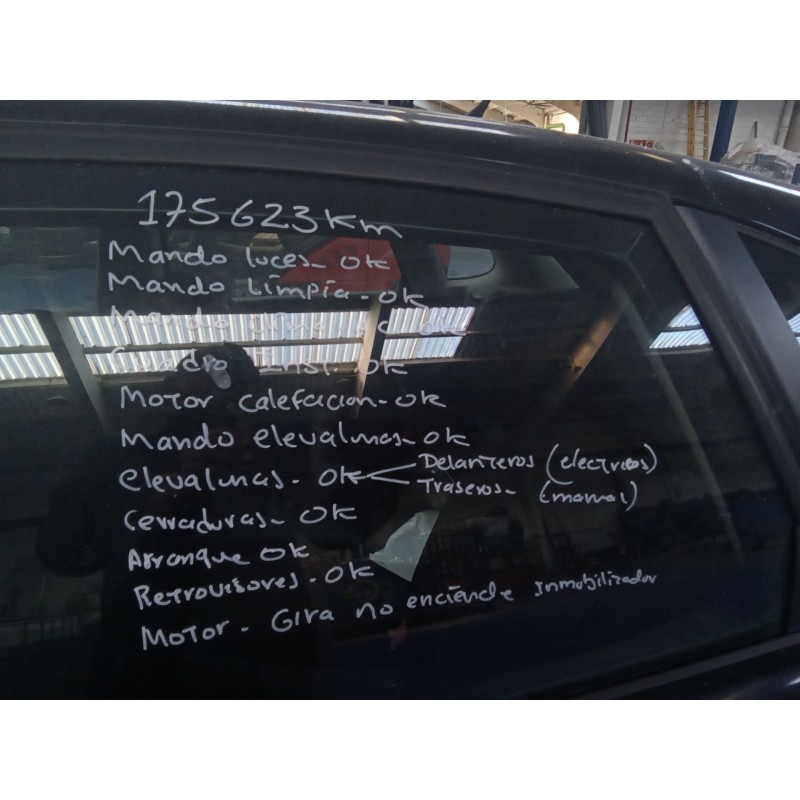 175623 Km
Mando luces - OK
Mando Limpia - OK
Mando AC OK
Cuadro Inst. OK
Motor calefacion - OK
Mando elevalunas - OK
elevalunas - OK Delanteros (electricos)
Traseros - (manual)
Cerraduras - OK
Arranque OK
Retrovisores - OK
Motor - Gira no enciende Inmobilizador